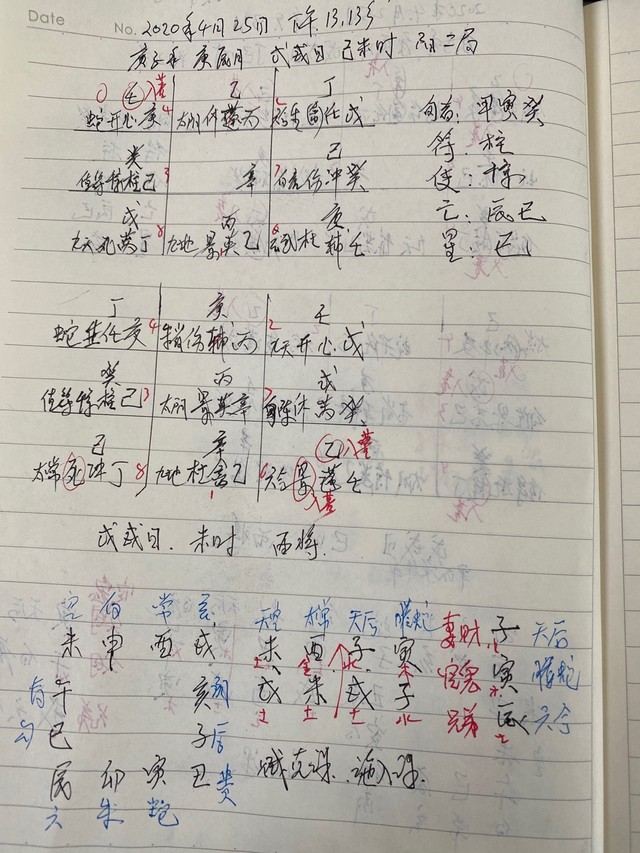 Date No. 2020年4月25日 下午.13.13分
庚子年 庚辰月 戊戌日 己未时 阳二局
① 壬 入墓 乙 丁
蛇开心庚 4 太阴休蓬丙 2 六合生芮任戊 旬首:甲寅癸
癸 己 符:柱
值符惊柱己 3 辛 7 白虎伤冲癸 使:惊
戊 丙 庚 亡:辰巳
九天死芮丁 8 九地景英乙 1 玄武杜辅壬 6 星:巳
丁 庚 壬
蛇生任庚 4 伤辅丙 2 九天开心戊
癸 丙 戊
值符惊柱己 3 太阴景英辛 7 休芮癸
己 辛 乙 入墓
太常死冲丁 8 九地杜禽乙 1 6 景蓬壬
入墓
戊戌日. 未时 酉将.
空 白 常 玄 天空 天后 螣蛇 妻财 子 天后
未 申 酉 戌 未 酉 子 寅 官鬼 寅 螣蛇
青 午 亥 阴 戌 未 戌 子 兄弟 辰 六合
勾 巳 子 后 土 土 土 水
辰 卯 寅 丑 贵
六 朱 蛇